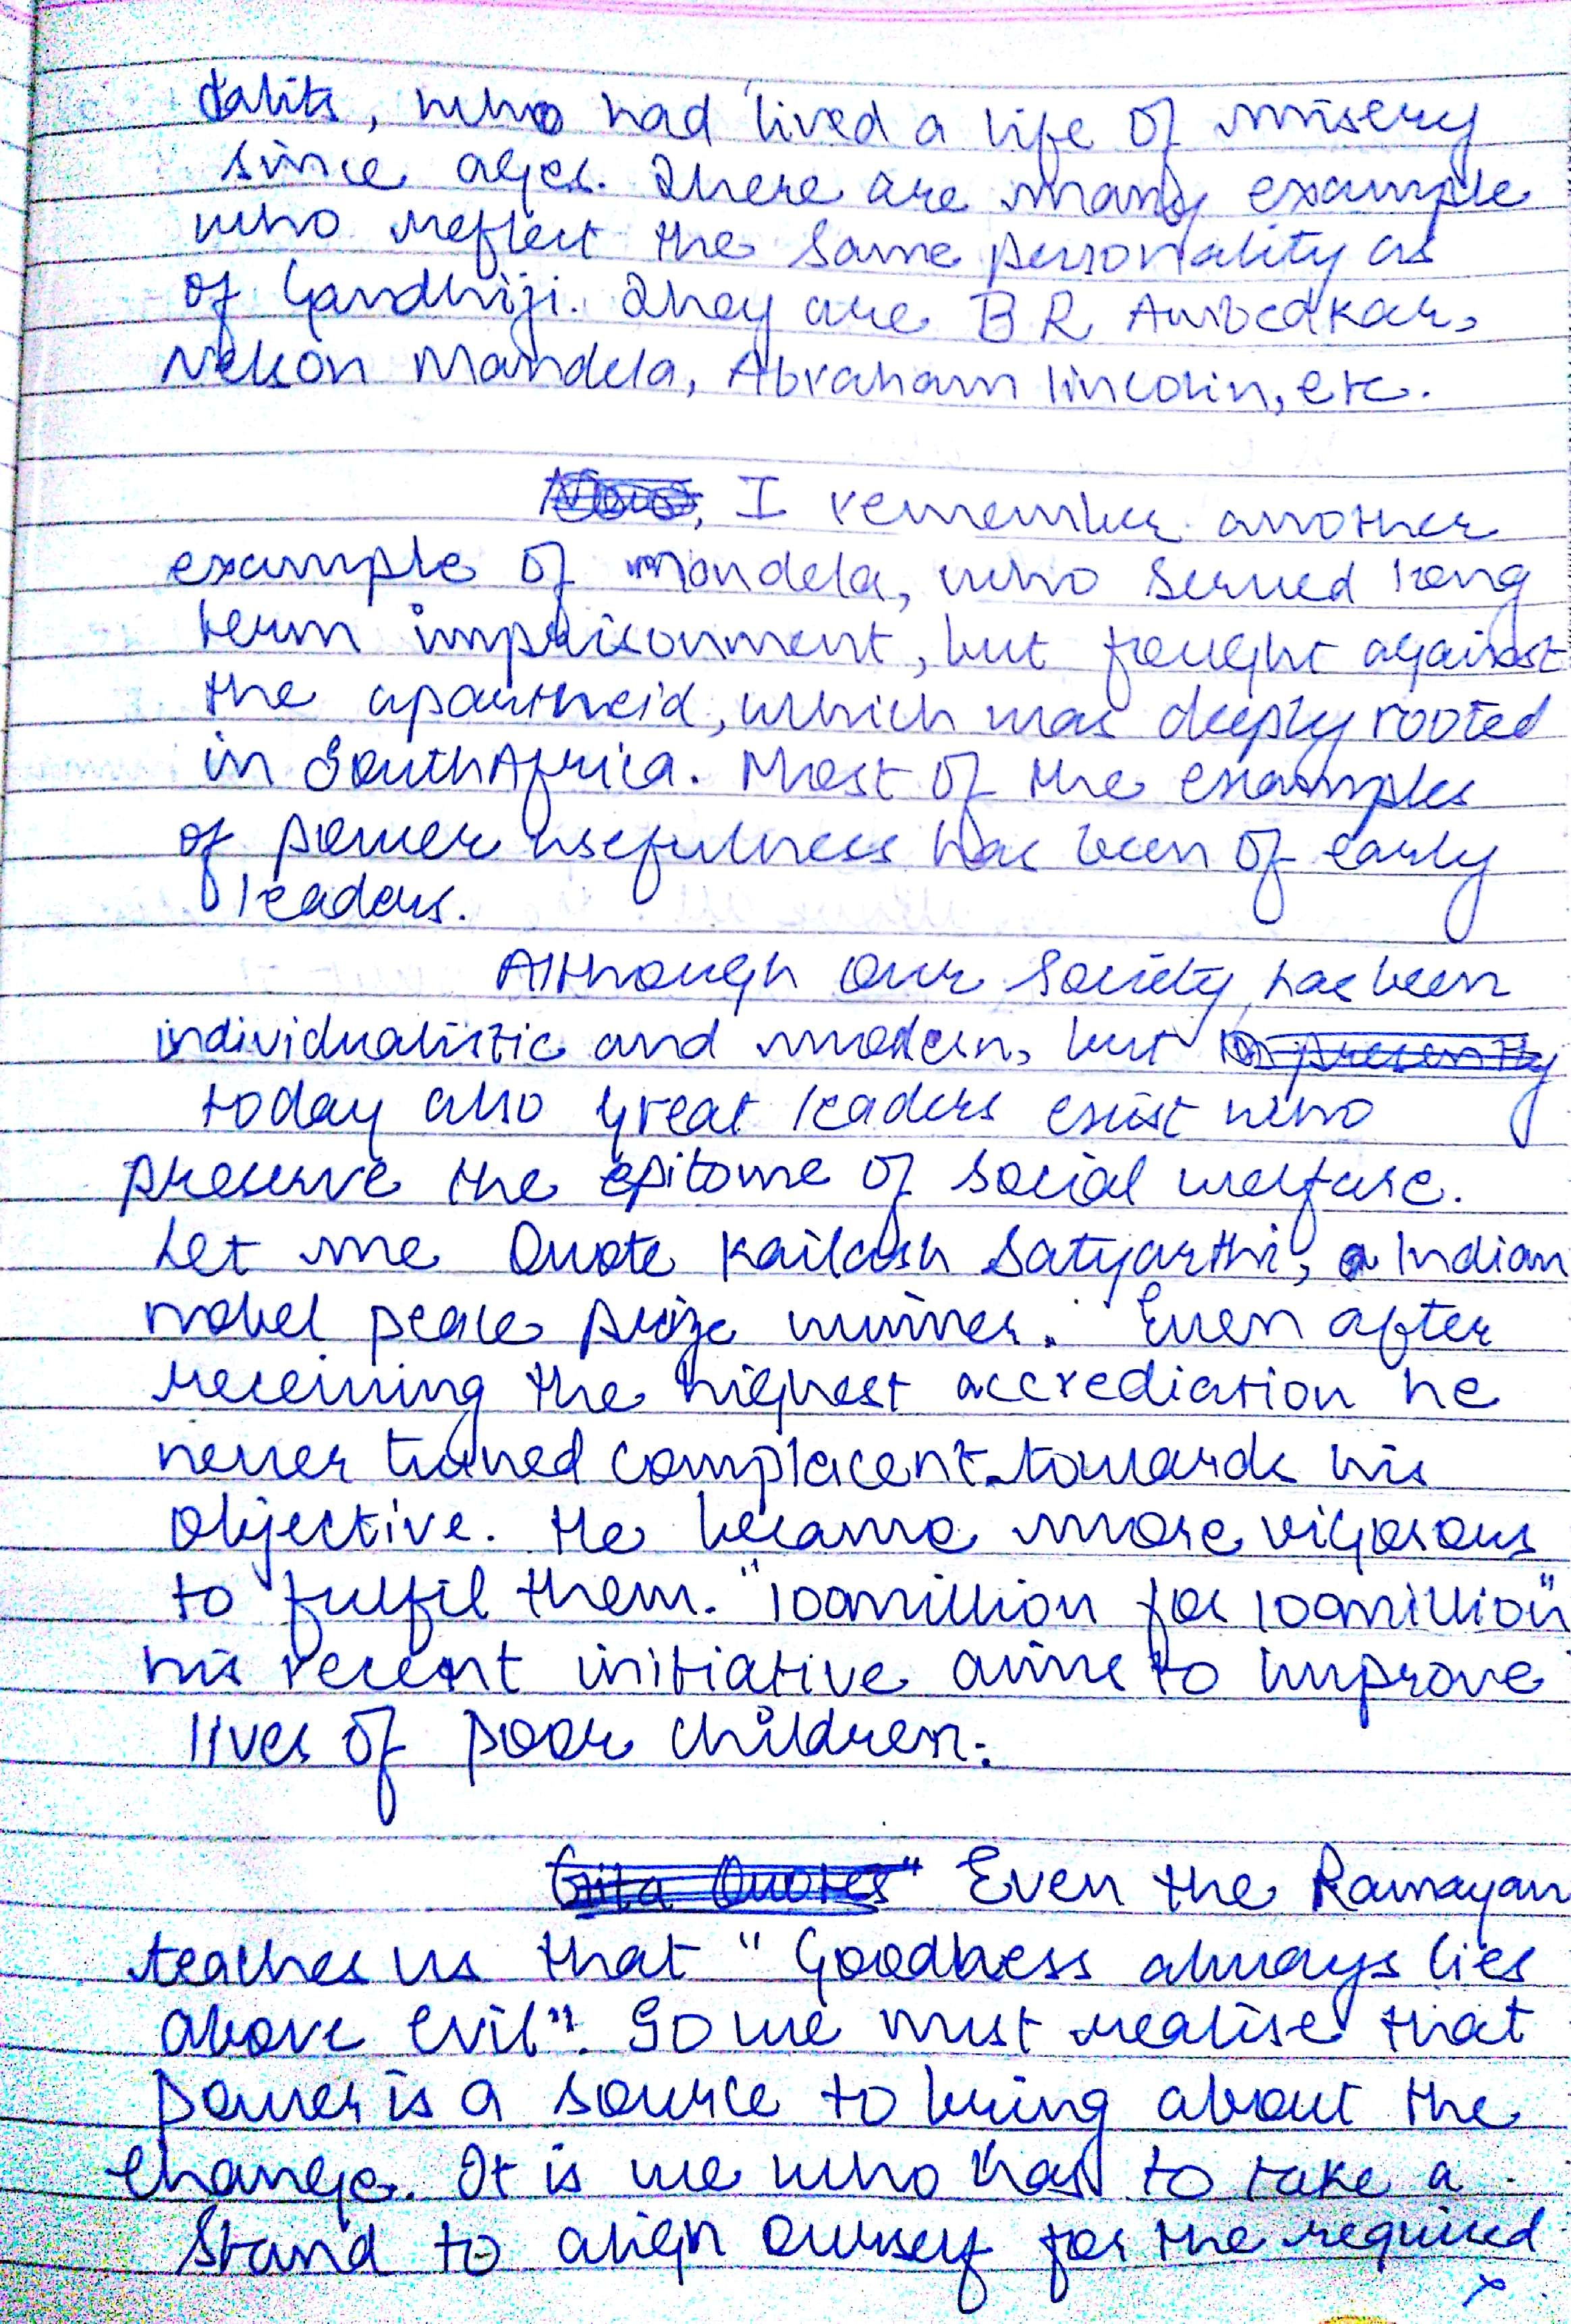 dalits, who had lived a life of misery
since ages. There are many example
who reflect the same personality as
of Gandhiji. They are B R Ambedkar,
Nelson Mandela, Abraham lincolin, etc.
I remember another
example of Mandela, who served long
term imprisonment, but fought against
the apartheid, which was deeply rooted
in South Africa. Most of the examples
of power usefulness has been of early
leaders.
Although our society has been
individualistic and modern, but presently
today also great leaders exist who
preserve the epitome of social welfare.
Let me Quote Kailash Satyarthi, a Indian
nobel peace prize winner. Even after
receiving the highest accrediation he
never turned complacent towards his
objective. He became more vigorous
to fulfil them. "100million for 100million"
his recent initiative aims to improve
lives of poor children.
Gita Quotes" Even the Ramayan
teaches us that "Goodness always lies
above evil". So we must realise that
power is a source to bring about the
change. It is we who has to take a
stand to align ourself for the required